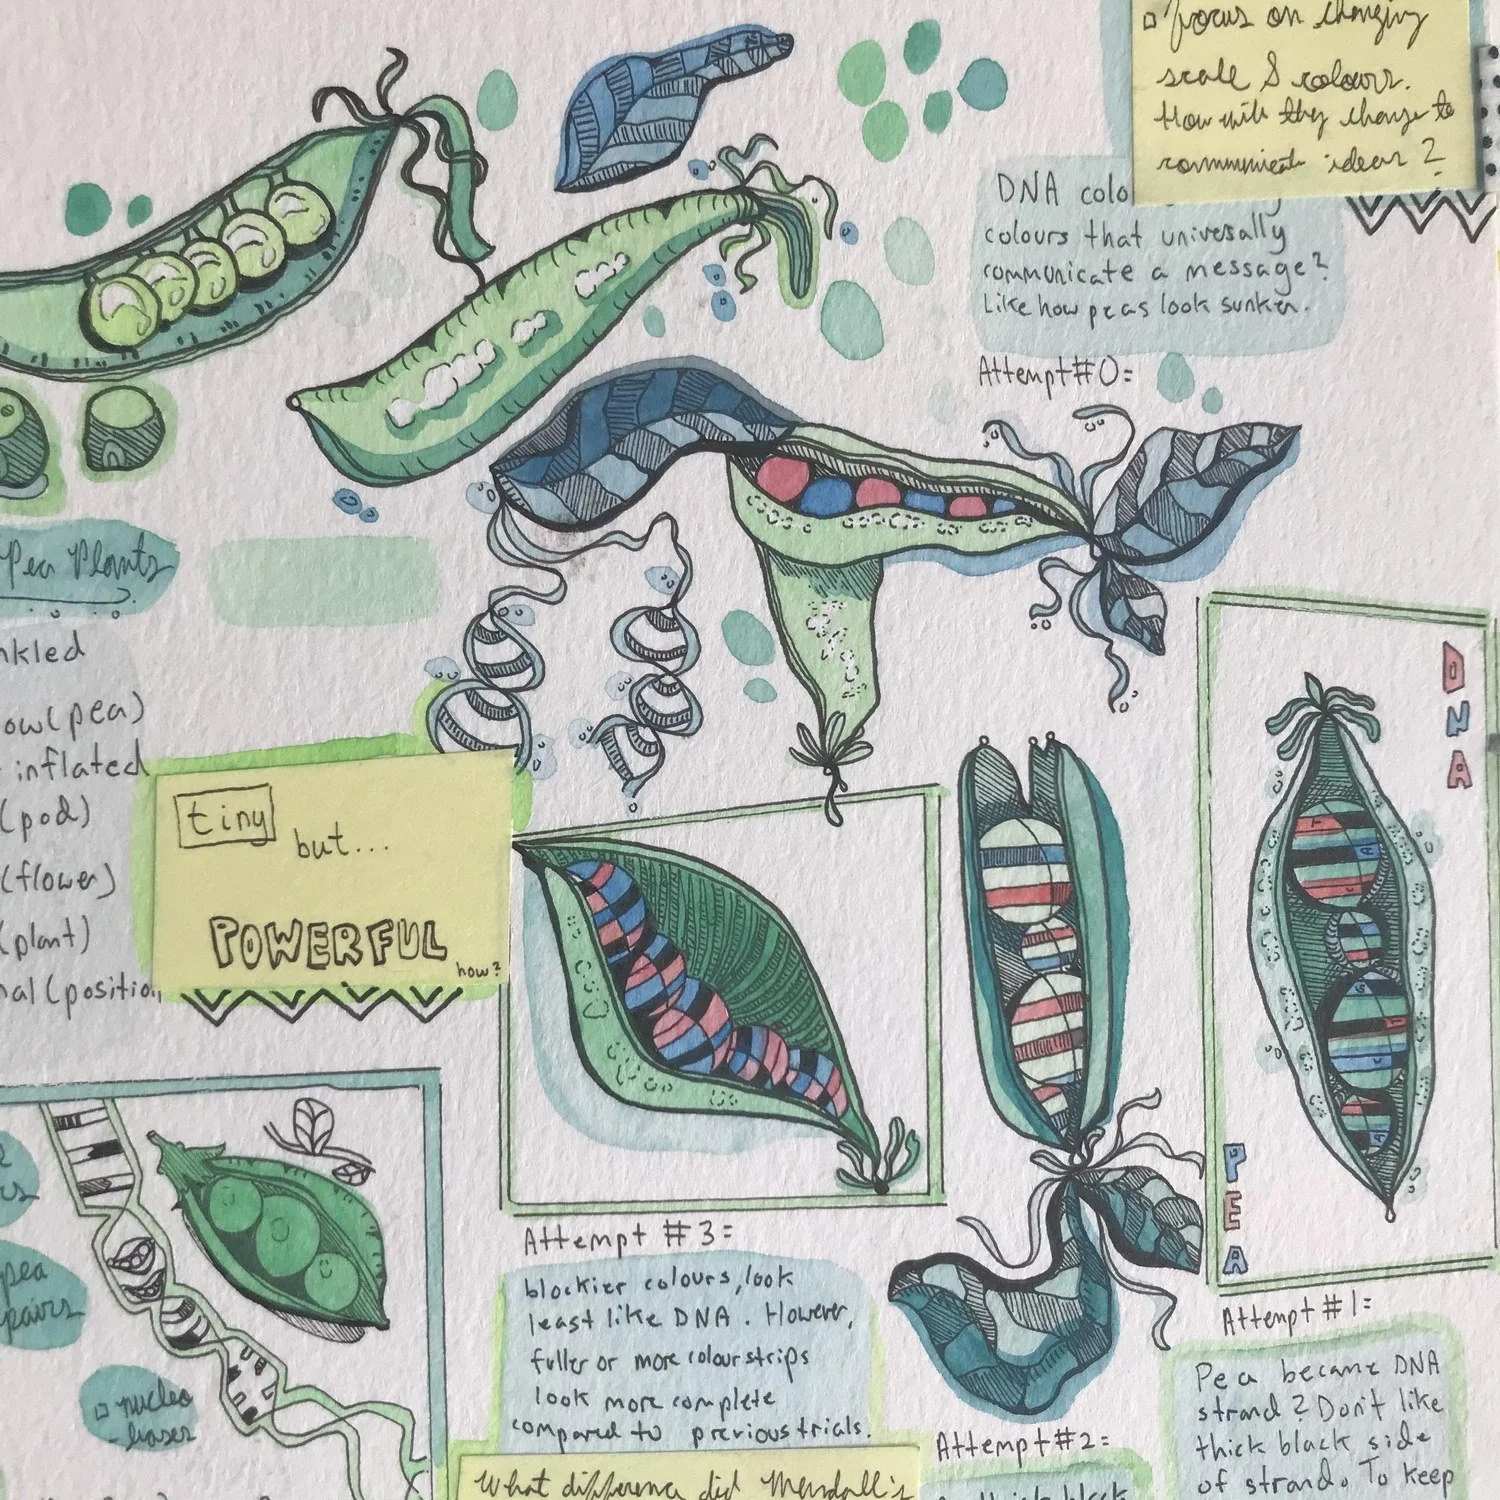 □ focus on changing
scale & colours.
How will they change to
communicate ideas?
DNA colo
colours that universally
communicate a message?
Like how peas look sunken.
Attempt #0=
Pea Plants
nkled
ow(pea)
inflated
(pod)
(flower)
(plant)
nal (position
tiny
but...
POWERFUL
how?
DNA
PEA
Attempt #3=
blockier colours, look
least like DNA. However,
fuller or more colour strips
look more complete
compared to previous trials.
Attempt #1=
Pea became DNA
strand? Don't like
thick black side
of strand. To keep
Attempt #2=
thick black
pea
pairs
□ nucleo
-bases
What difference did Mendall's